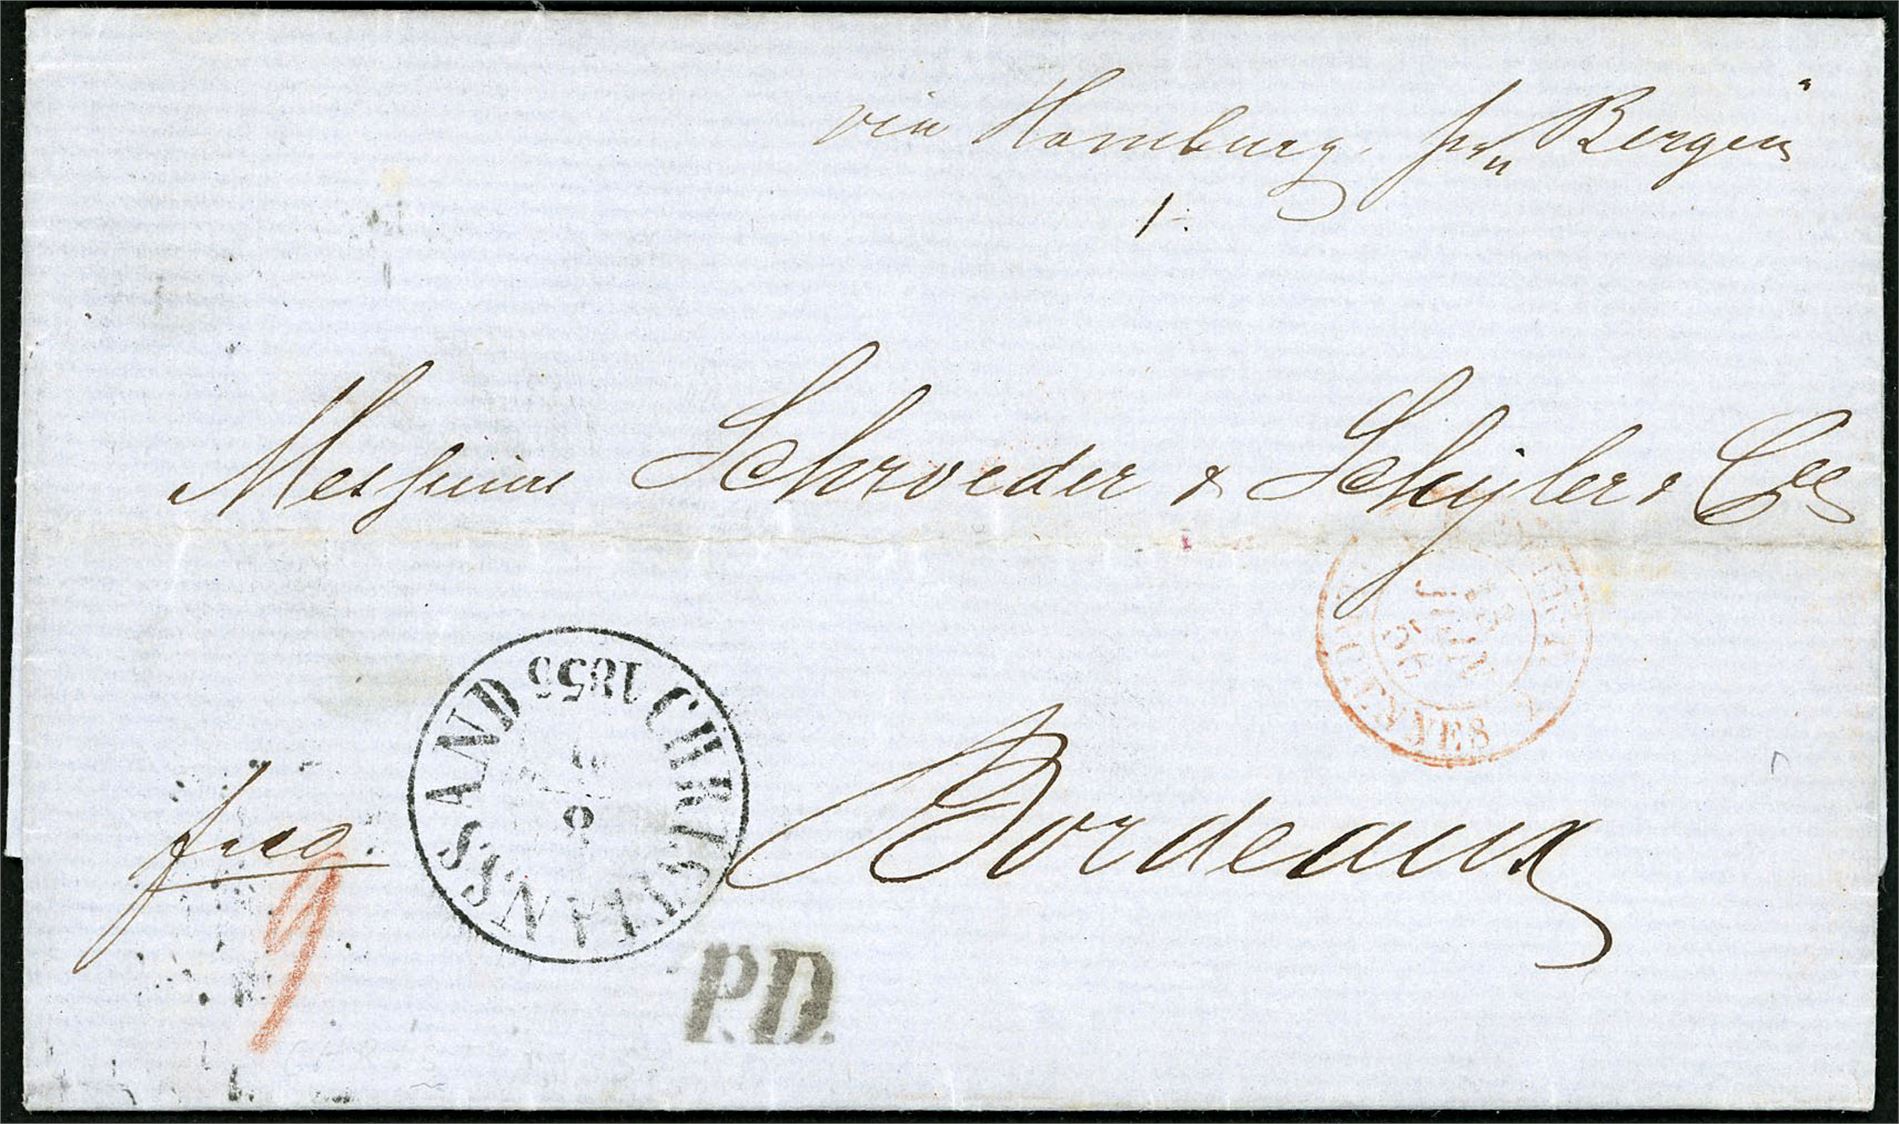 via Hamburg pr „Bergen"
Messieurs Schroeder & Schÿler & Cie
Bordeaux
franco.
9
CHRISTIANSSAND 1855
8
P.D.
VALENNES
JUIN